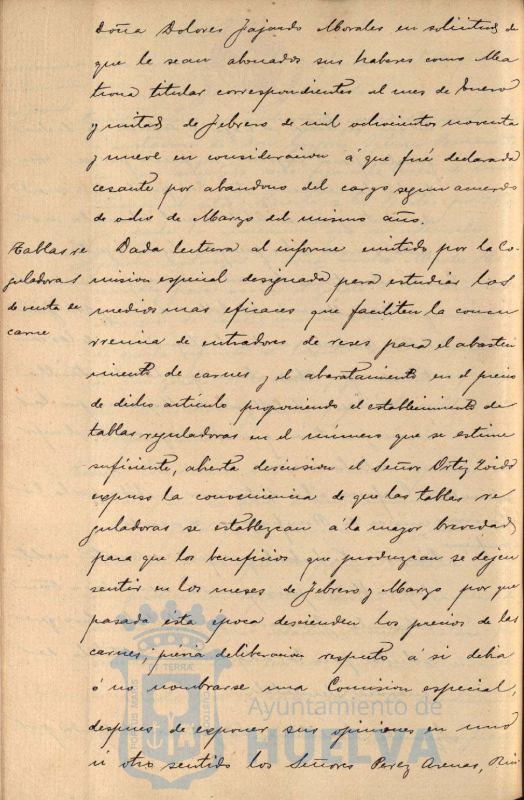 Doña Dolores Fajardo Morales en solicitud de
que le sean abonados sus haberes como Ma
trona titular correspondientes al mes de Enero
y mitad de Febrero de mil ochocientos noventa
y nueve en consideracion á que fué declarada
cesante por abandono del cargo segun acuerdo
de ocho de Marzo del mismo año.
Tablas re
guladoras
de venta de
carne
Dada lectura al informe emitido por la Co-
mision especial designada para estudiar los
medios mas eficaces que faciliten la concu
rrencia de entradores de reses para el abasteci
miento de carnes y el abaratamiento en el precio
de dicho artículo proponiendo el establecimiento de
tablas reguladoras en el número que se estime
suficiente, abierta discusion el Señor Ortiz
expuso la conveniencia de que las tablas re
guladoras se establezcan á la mayor brevedad
para que los beneficios que produzcan se dejen
sentir en los meses de Febrero y Marzo por que
pasada esta época descienden los precios de las
carnes; previa deliberacion respecto á si debia
ó no nombrarse una Comision especial,
despues de exponer sus opiniones en uno
ú otro sentido los Señores Perez Arenas,
Ayuntamiento de
HUELVA